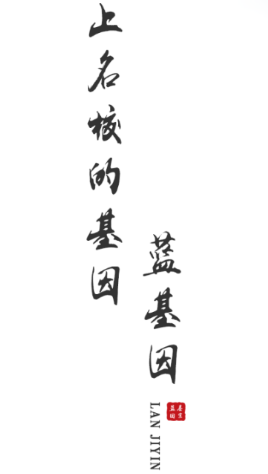 上名校的基因
蓝基因
LAN JIYIN